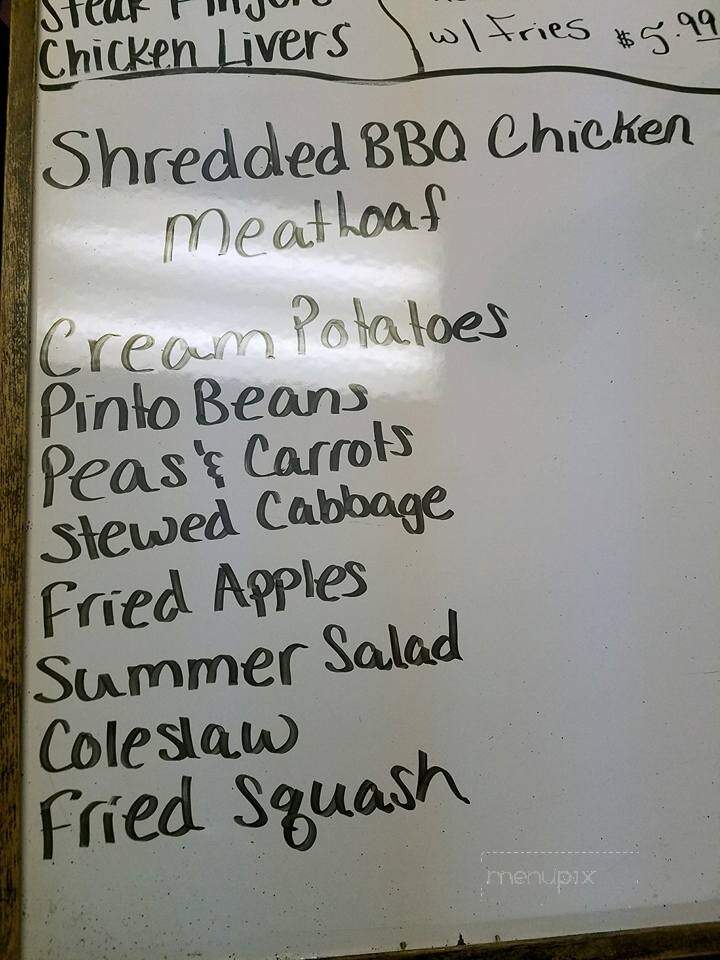 Steak Fingers
Chicken Livers
w/ Fries $5.99
Shredded BBQ Chicken
Meatloaf
Cream Potatoes
Pinto Beans
Peas & Carrots
Stewed Cabbage
Fried Apples
Summer Salad
Coleslaw
Fried Squash
menupix